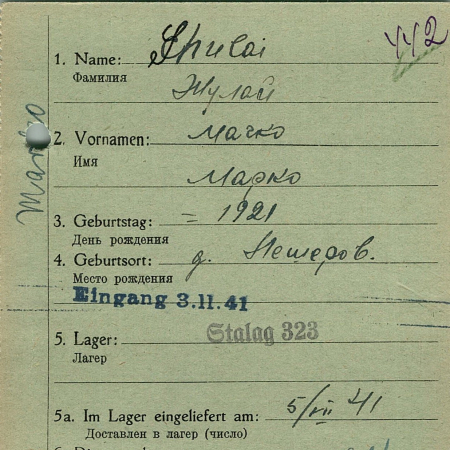 442
1. Name: Shulai
Фамилия
Жулай
2. Vornamen: Мачко
Имя
Марко
Marko
3. Geburtstag: = 1921
День рождения
4. Geburtsort: д. Нешеров.
Место рождения
Eingang 3.11.41
5. Lager: Stalag 323
Лагер
5a. Im Lager eingeliefert am: 5/VII 41
Доставлен в лагер (число)